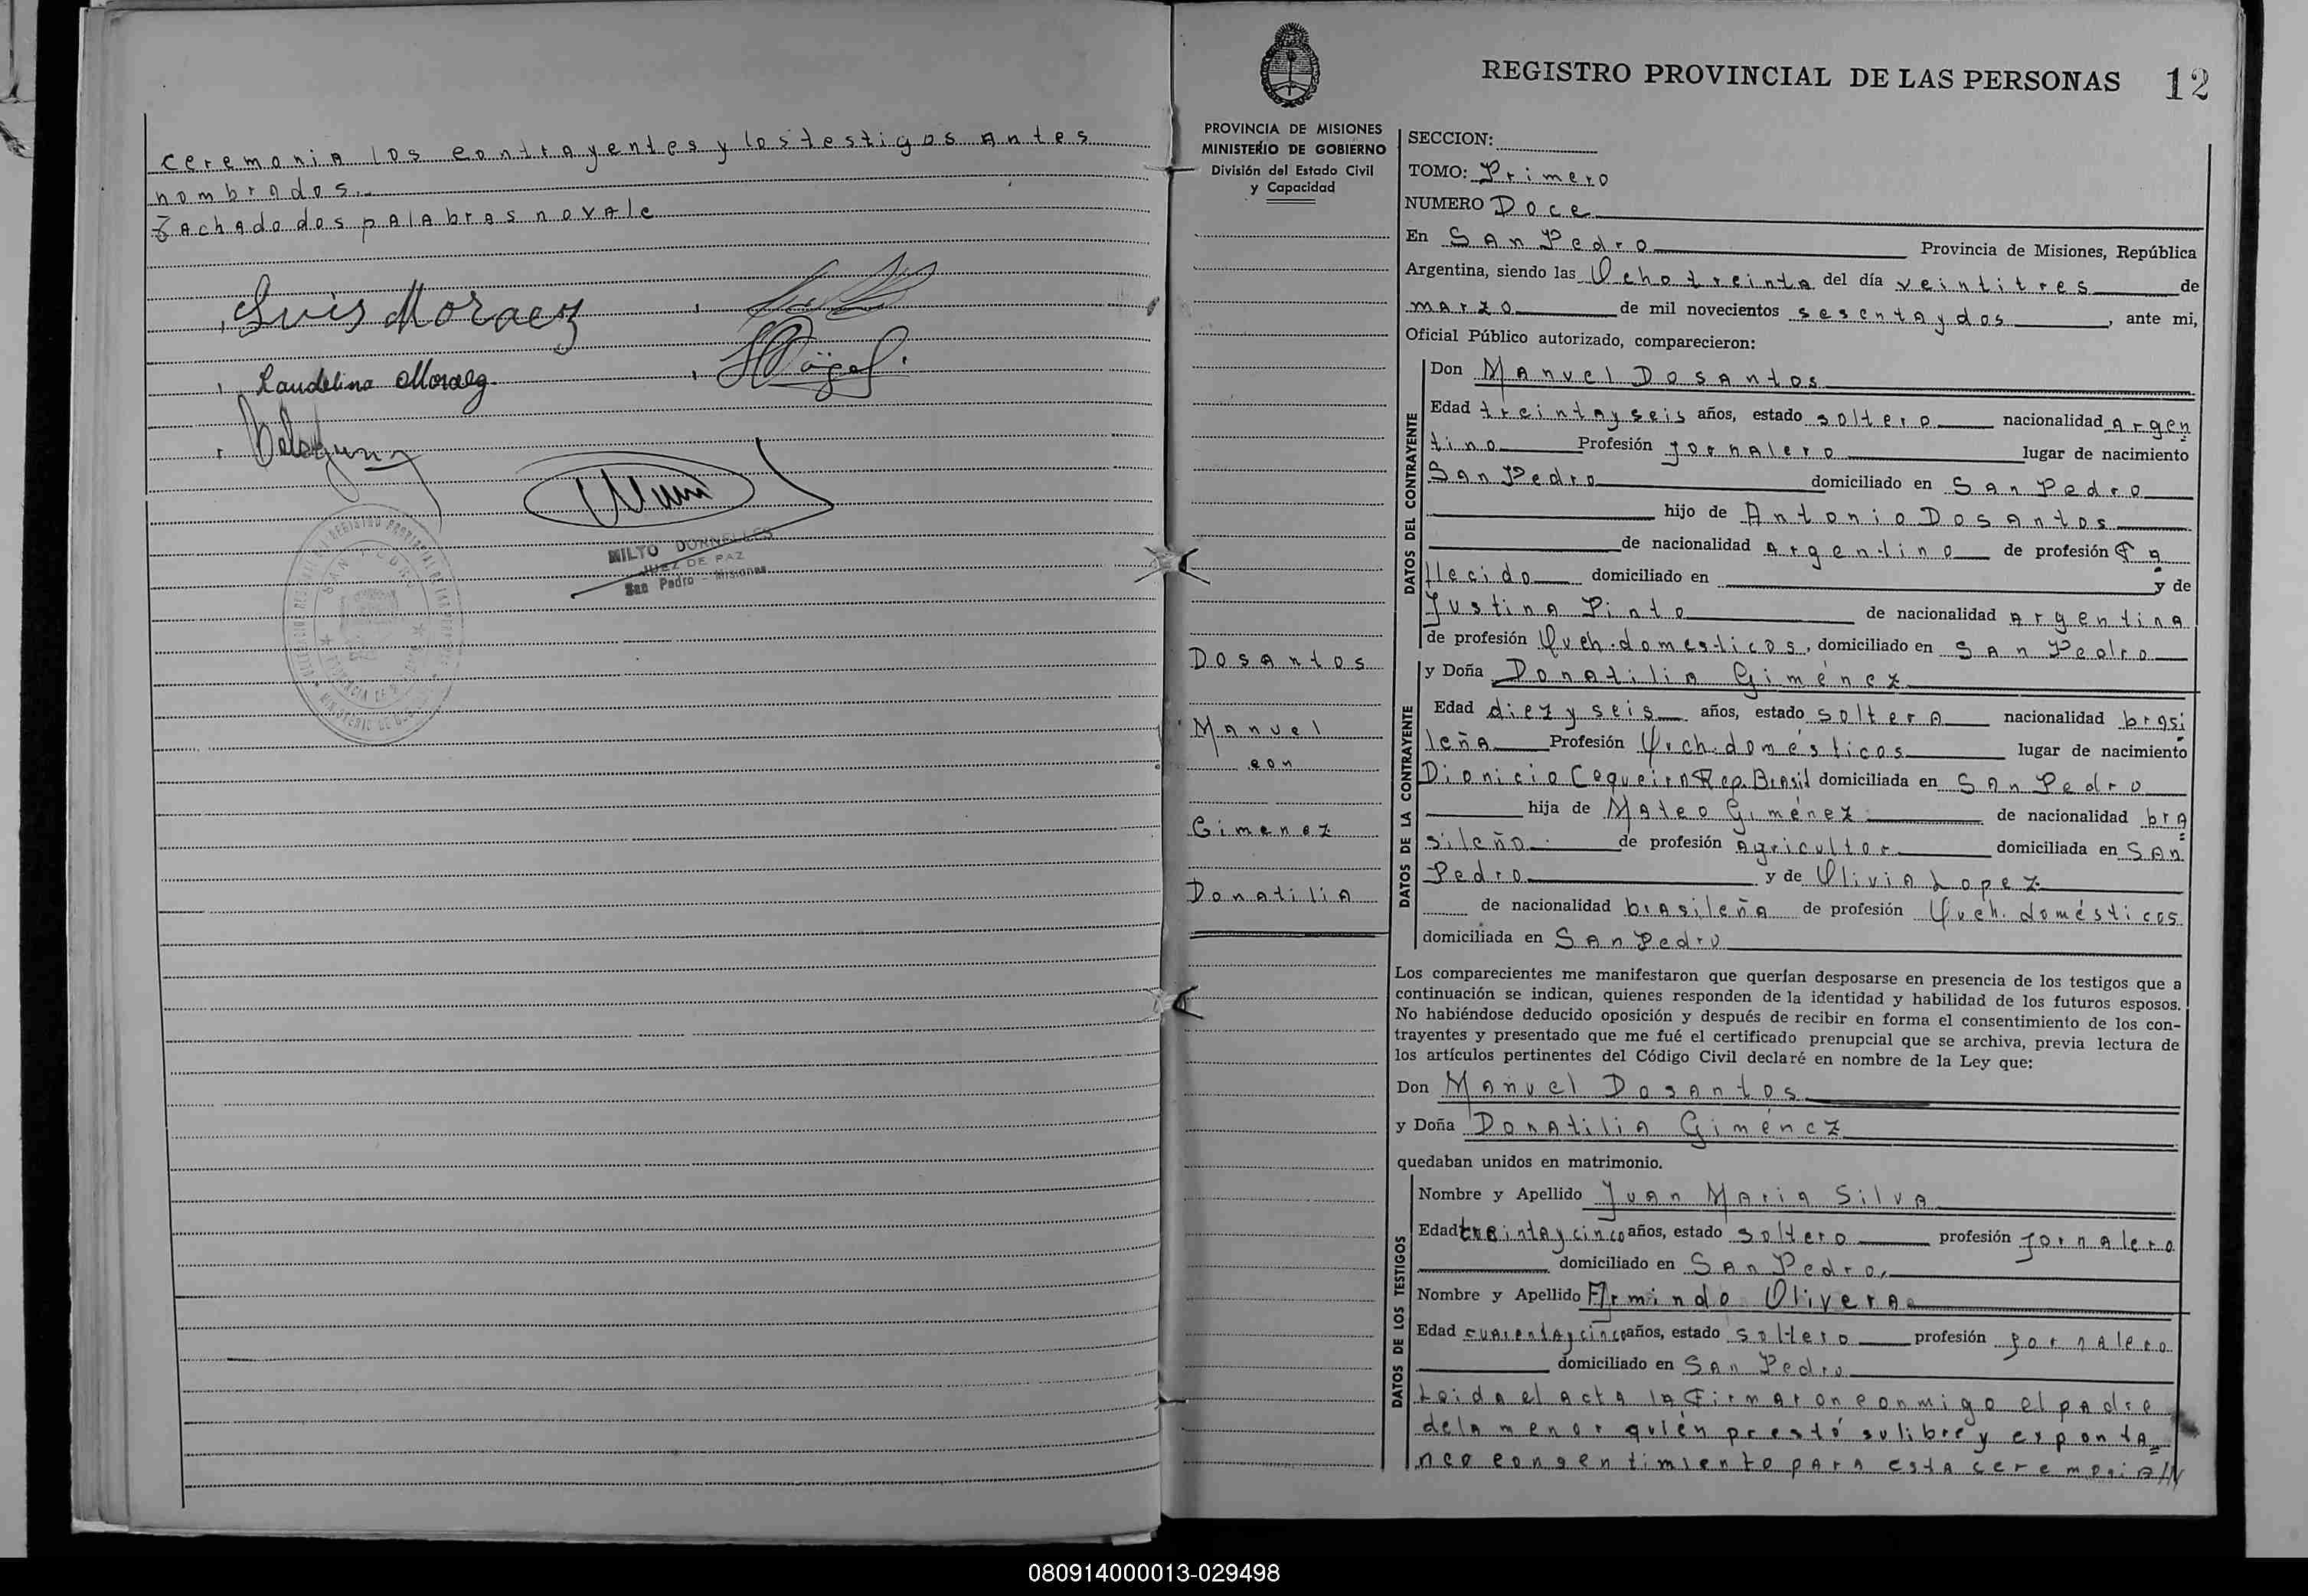 ceremonia los contrayentes y los testigos antes
nombrados.-
Tachado dos palabras no vale
Luis Moraez
Laudelino Moraeg
MILTO DORNELLES
JUEZ DE PAZ
San Pedro - Misiones
REGISTRO PROVINCIAL DE LAS PERSONAS 12
PROVINCIA DE MISIONES
MINISTERIO DE GOBIERNO
División del Estado Civil
y Capacidad
Dosantos
Manuel
con
Gimenez
Donatilia
SECCION:
TOMO: Primero
NUMERO Doce
En San Pedro Provincia de Misiones, República
Argentina, siendo las Ocho treinta del día veintitres de
marzo de mil novecientos sesentaydos, ante mi,
Oficial Público autorizado, comparecieron:
DATOS DEL CONTRAYENTE
Don Manuel Dosantos
Edad treintayseis años, estado soltero nacionalidad Argen
tino Profesión Jornalero lugar de nacimiento
San Pedro domiciliado en San Pedro
hijo de Antonio Dosantos
de nacionalidad Argentino de profesión Fa
llecido domiciliado en y de
Justina Pinto de nacionalidad Argentina
de profesión Queh. domesticos, domiciliado en San Pedro
DATOS DE LA CONTRAYENTE
y Doña Donatilia Giménez
Edad diez y seis años, estado soltera nacionalidad brasi
leña Profesión Queh. domésticos lugar de nacimiento
Dionicio Cequeira Rep. Brasil domiciliada en San Pedro
hija de Mateo Giménez de nacionalidad bra
sileño de profesión Agricultor domiciliada en San
Pedro y de Olivia Lopez
de nacionalidad brasileña de profesión Queh. domésticos
domiciliada en San Pedro
Los comparecientes me manifestaron que querían desposarse en presencia de los testigos que a
continuación se indican, quienes responden de la identidad y habilidad de los futuros esposos.
No habiéndose deducido oposición y después de recibir en forma el consentimiento de los con-
trayentes y presentado que me fué el certificado prenupcial que se archiva, previa lectura de
los artículos pertinentes del Código Civil declaré en nombre de la Ley que:
Don Manuel Dosantos
y Doña Donatilia Giménez
quedaban unidos en matrimonio.
DATOS DE LOS TESTIGOS
Nombre y Apellido Juan Maria Silva
Edad treintaycinco años, estado soltero profesión Jornalero
domiciliado en San Pedro,
Nombre y Apellido Armindo Olivera
Edad cuarentaycinco años, estado soltero profesión Jornalero
domiciliado en San Pedro
Leida el acta la firmaron conmigo el padre
dela menor quién prestó su libre y exponta=
neo consentimiento para esta ceremonia//
080914000013-029498